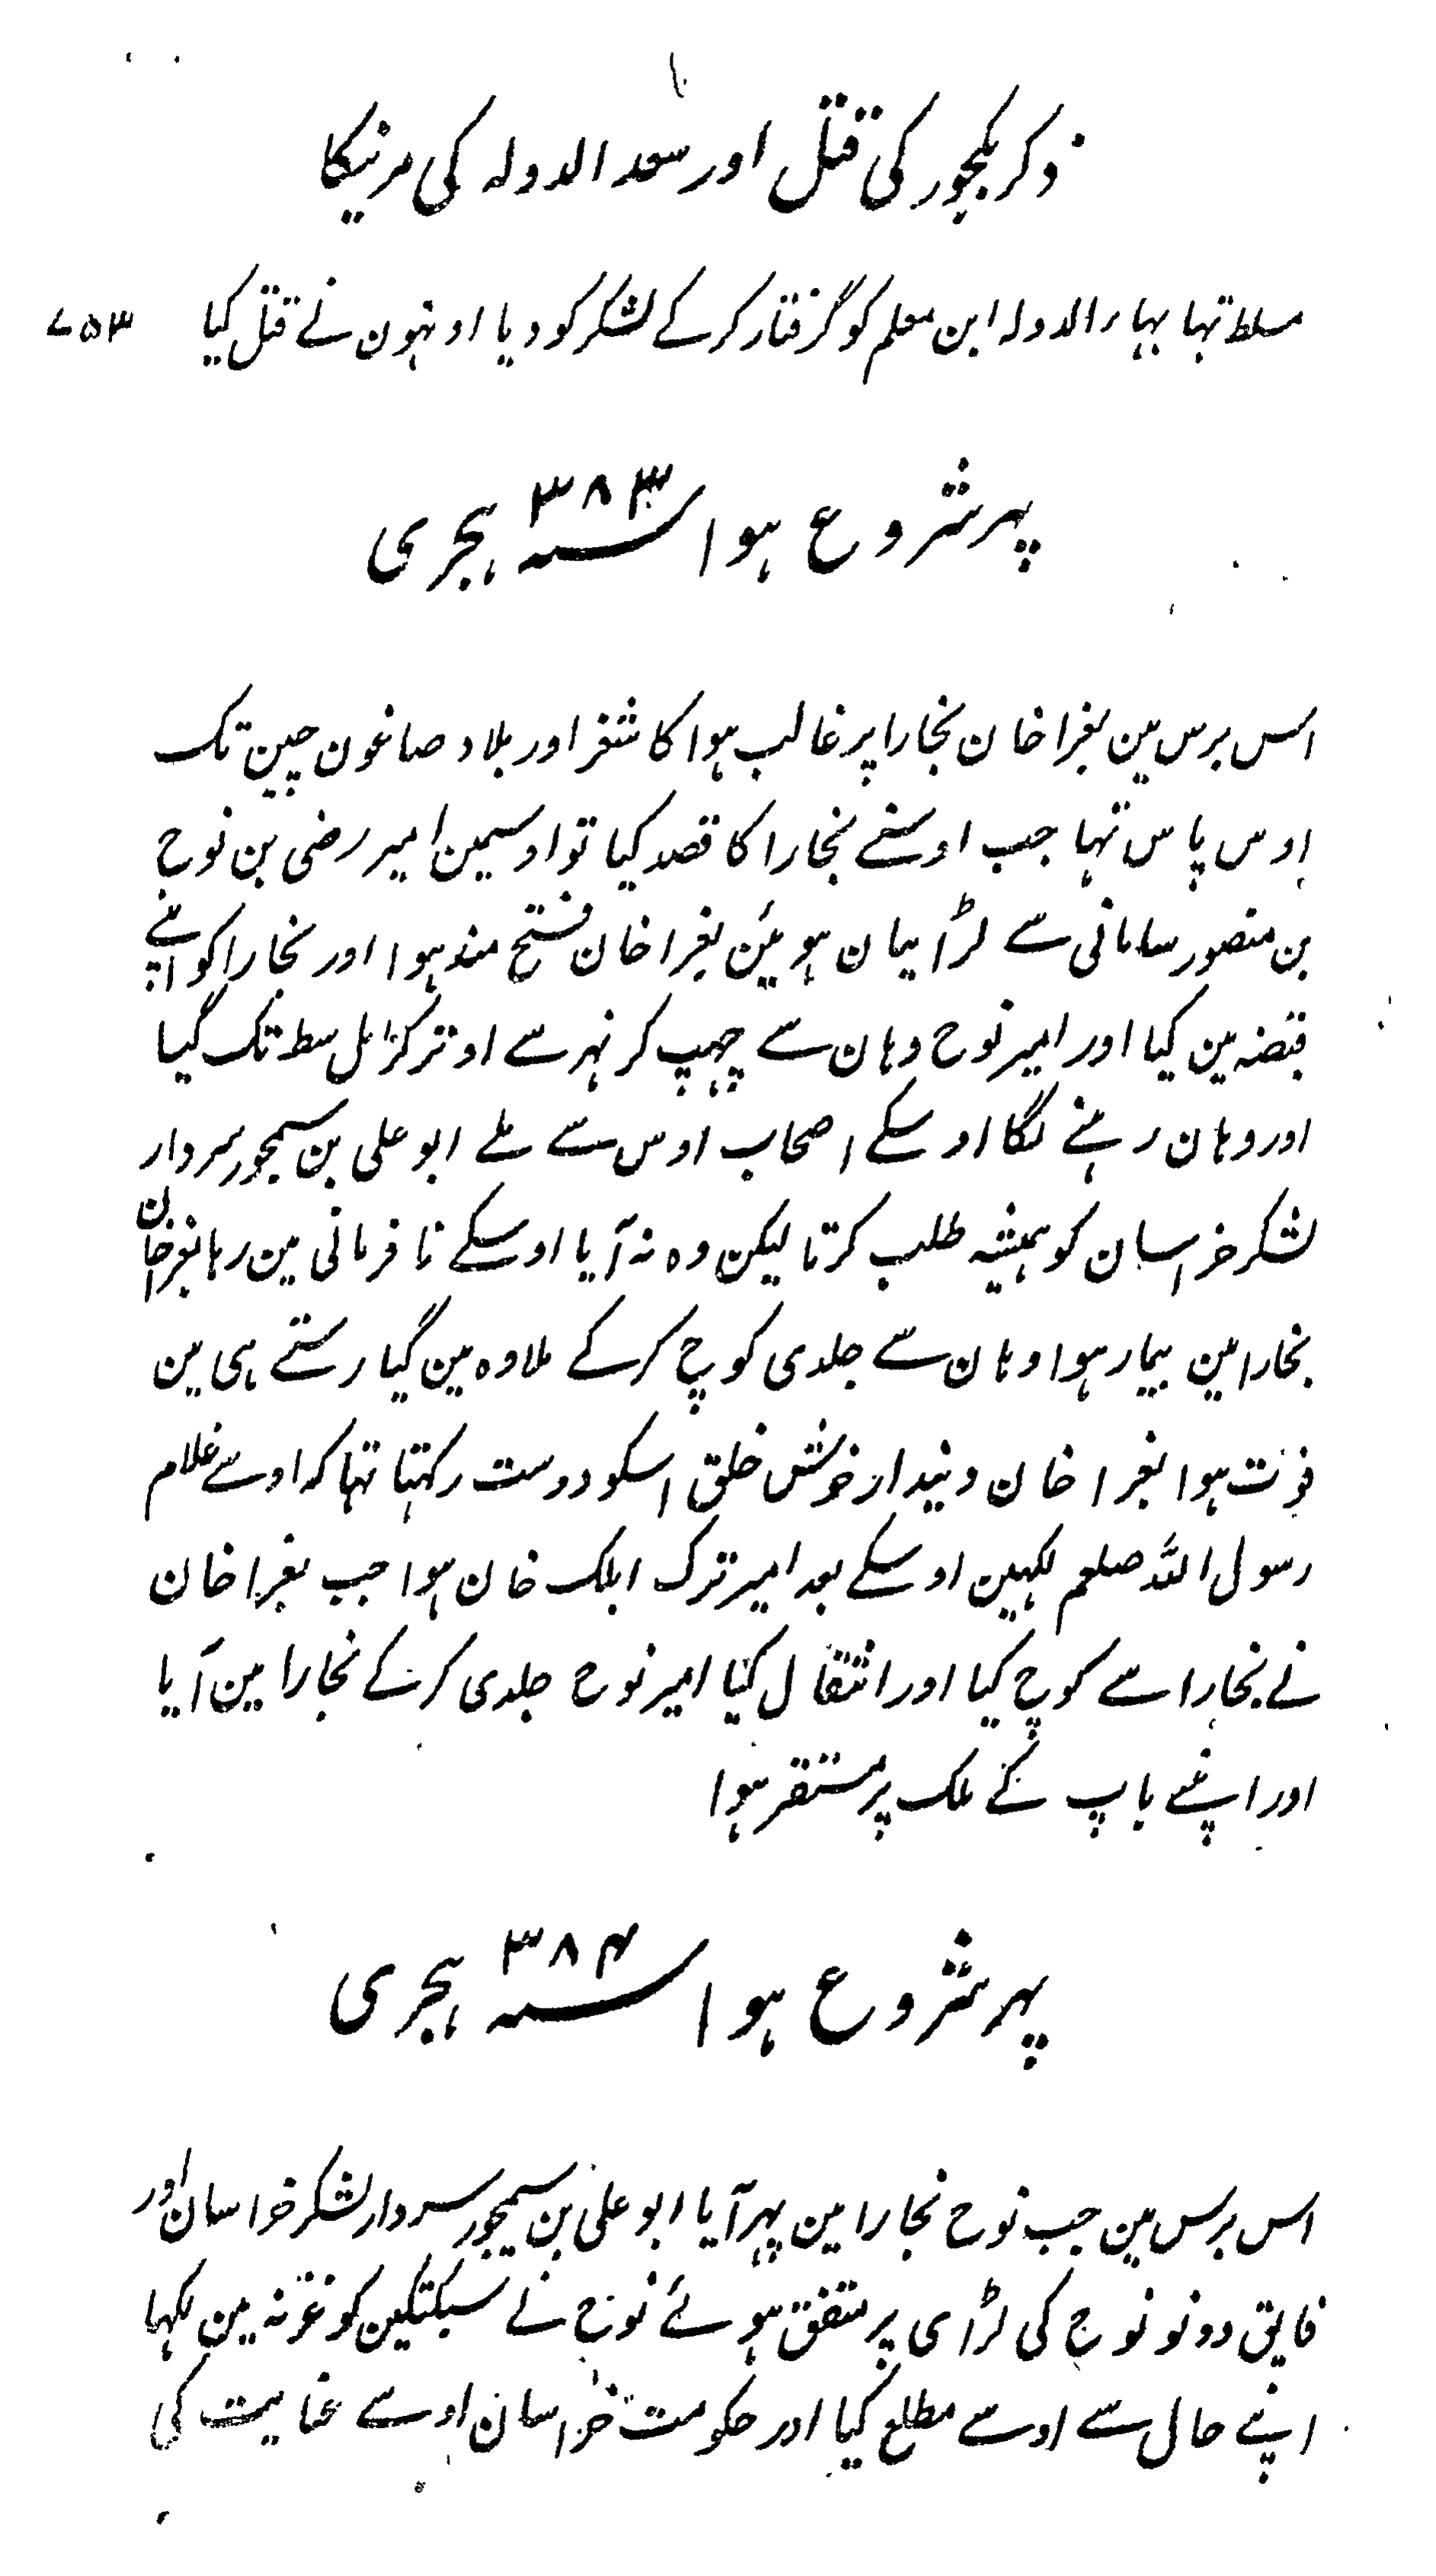 ذکر بکجور کی قتل اور سعد الدولہ کی مرنیکا
مسلط تہا بہاء الدولہ ابن معلم کو گرفتار کر کے لشکر کو دیا اونہون نے قتل کیا ۷۵۳
پہر شروع ہوا سنہ ۳۸۳ ہجری
اس برس مین بغرا خان بخارا پر غالب ہوا کاشغر اور بلاد صاغون چین تک
اوس پاس تہا جب اوسنے بخارا کا قصد کیا تو اوسمین امیر رضی بن نوح
بن منصور سامانی سے لڑائیان ہوئین بغرا خان فتح مند ہوا اور بخارا کو اپنے
قبضہ مین کیا اور امیر نوح وہان سے چہپ کر نہر سے اوتر کر امل سط تک گیا
اور وہان رہنے لگا اوسکے اصحاب اوس سے ملے ابو علی بن سیمجور سردار
لشکر خراسان کو ہمیشہ طلب کرتا لیکن وہ نہ آیا اوسکے نافرمانی مین رہا بغرا خان
بخارا مین بیمار ہوا وہان سے جلدی کوچ کر کے ملاوہ مین گیا رستے ہی مین
فوت ہوا بغرا خان دیندار خوش خلق اسکو دوست رکہتا تہا کہ اوسے غلام
رسول اللہ صلعم لکہین اوسکے بعد امیر ترک ایلک خان ہوا جب بغرا خان
نے بخارا سے کوچ کیا اور انتقال کیا امیر نوح جلدی کر کے بخارا مین آیا
اور اپنے باپ کے ملک پر مستقر ہوا
پہر شروع ہوا سنہ ۳۸۴ ہجری
اس برس مین جب نوح بخارا مین پہر آیا ابو علی بن سیمجور سردار لشکر خراسان اور
فایق دونو نوح کی لڑای پر متفق ہوئے نوح نے سبکتکین کو غزنہ مین لکہا
اپنے حال سے اوسے مطلع کیا اور حکومت خراسان اوسے عنایت کی